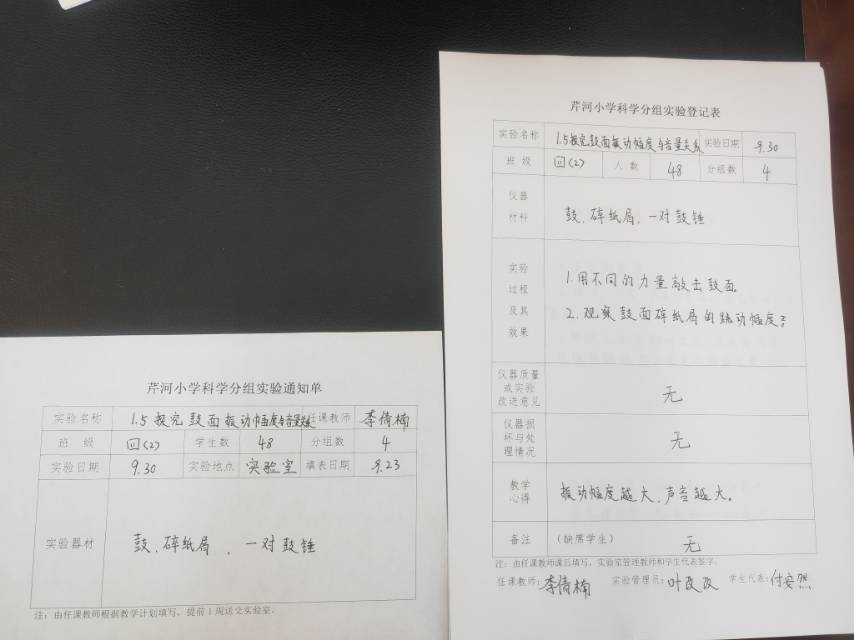 芹河小学科学分组实验通知单
实验名称 1.5探究鼓面振动幅度与音量关系 任课教师 李倩楠
班 级 四(2) 学生数 48 分组数 4
实验日期 9.30 实验地点 实验室 填表日期 9.23
实验器材 鼓、碎纸局、一对鼓锤
注：由任课教师根据教学计划填写，提前1周送交实验室。
芹河小学科学分组实验登记表
实验名称 1.5探究鼓面振动幅度与音量关系 实验日期 9.30
班 级 四(2) 人 数 48 分组数 4
仪器
材料
鼓、碎纸局、一对鼓锤
实验
过程
及其
效果
1.用不同的力量敲击鼓面。
2.观察鼓面碎纸局的跳动幅度
仪器质量
或实验
改进意见
无
仪器损
坏与处
理情况
无
教学
心得
振动幅度越大，声音越大。
备注 （缺席学生） 无
注：由任课教师课后填写，实验室管理教师和学生代表签字。
任课教师：李倩楠 实验管理员：叶改改 学生代表：付安然